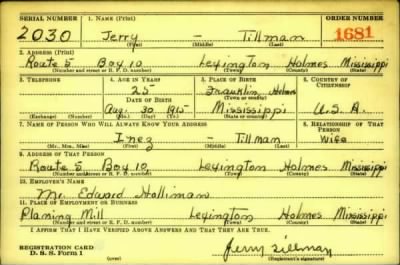 SERIAL NUMBER 1. NAME (Print) ORDER NUMBER
2030 Jerry - Tillman 1681
(First) (Middle) (Last)
2. ADDRESS (Print)
Route 5 Box 10 Lexington Holmes Mississippi
(Number and street or R. F. D. number) (Town) (County) (State)
3. TELEPHONE 4. AGE IN YEARS 5. PLACE OF BIRTH 6. COUNTRY OF CITIZENSHIP
25 Franklin Holmes
DATE OF BIRTH (Town) (County)
Aug. 30 1915 Mississippi U.S.A
(Exchange) (Number) (Mo.) (Day) (Yr.) (State or country)
7. NAME OF PERSON WHO WILL ALWAYS KNOW YOUR ADDRESS 8. RELATIONSHIP OF THAT PERSON
Inez - Tillman Wife
(Mr., Mrs., Miss) (First) (Middle) (Last)
9. ADDRESS OF THAT PERSON
Route 5 Box 10 Lexington Holmes Mississippi
(Number and street or R. F. D. number) (Town) (County) (State)
10. EMPLOYER'S NAME
Mr. Edward Holliman
11. PLACE OF EMPLOYMENT OR BUSINESS
Planing Mill Lexington Holmes Mississippi
(Number and street or R. F. D. number) (Town) (County) (State)
I AFFIRM THAT I HAVE VERIFIED ABOVE ANSWERS AND THAT THEY ARE TRUE.
REGISTRATION CARD Jerry Tillman
D. S. S. Form 1 (over) (Registrant's signature)